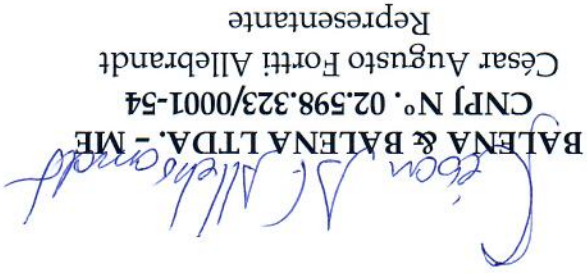 César A. F. Allebrandt
BALENA & BALENA LTDA. – ME
CNPJ N°. 02.598.323/0001-54
César Augusto Fortti Allebrandt
Representante